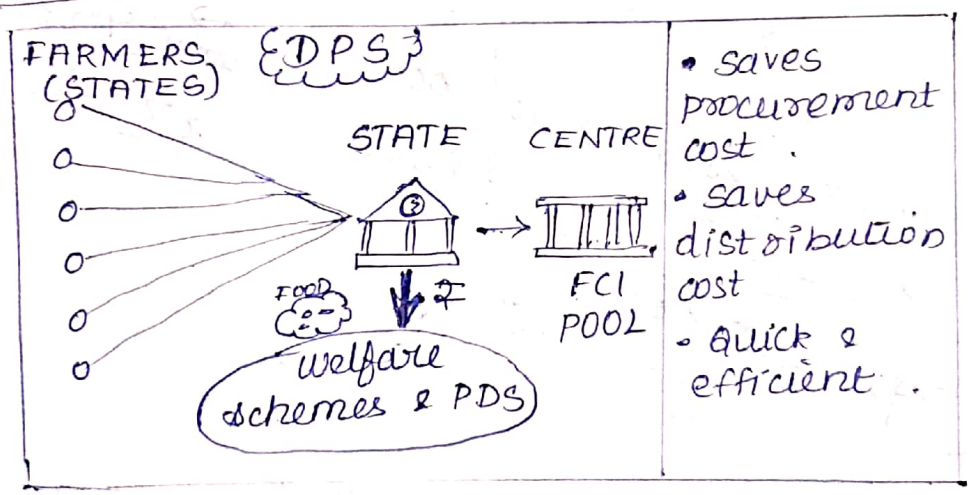 FARMERS
(STATES)
DPS
STATE
CENTRE
FOOD
FCI
POOL
welfare
schemes & PDS
• saves
procurement
cost .
• saves
distribution
cost
• Quick &
efficient .